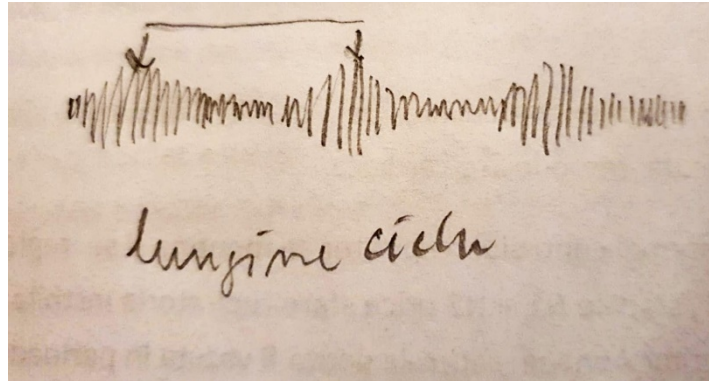 lungime ciclu